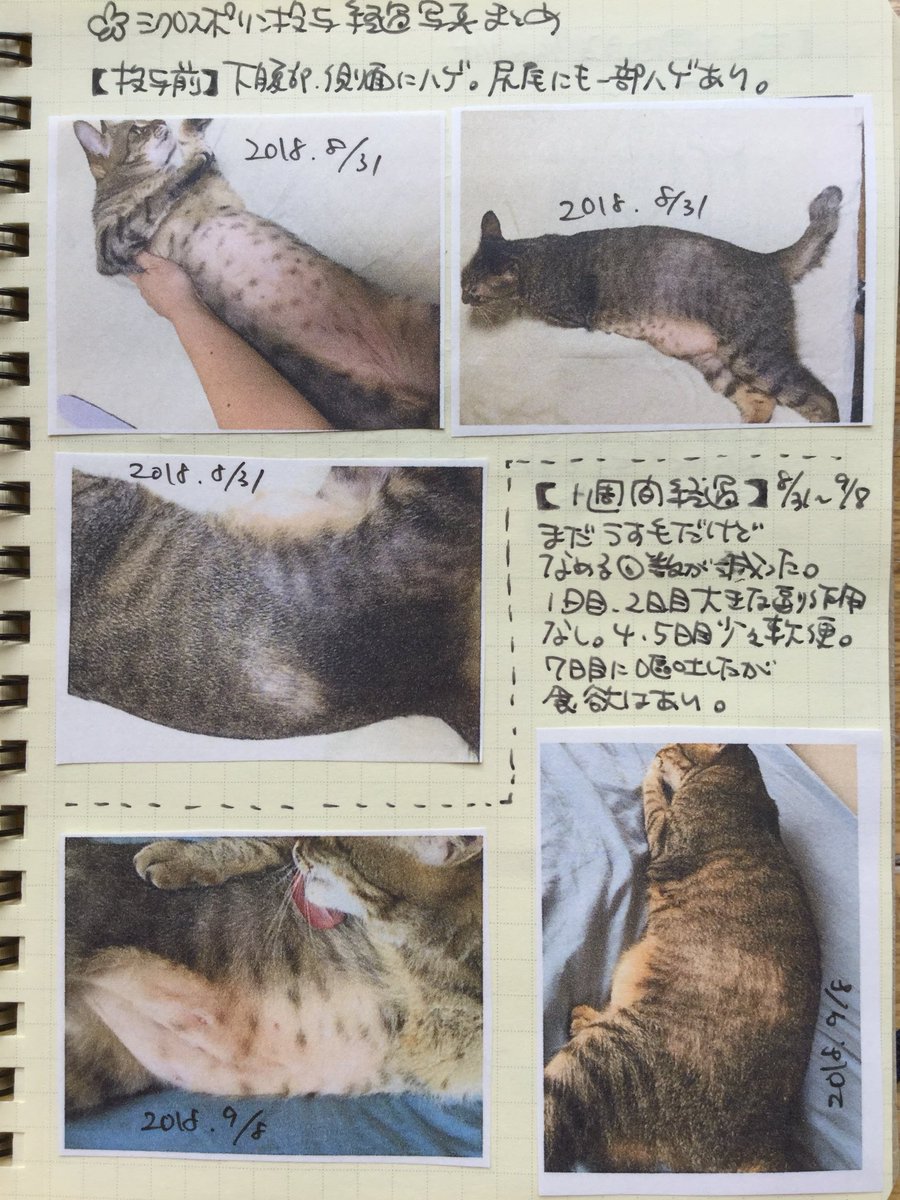 シクロスポリン投与経過写真まとめ
【投与前】下腹部、側面にハゲ。尻尾にも一部ハゲあり。
2018.8/31
2018.8/31
2018.8/31
【1週間経過】8/31〜9/8
まだうす毛だけど
なめる回数が減った。
1日目、2日目大きな副作用
なし。4.5日目少々軟便。
7日目に嘔吐したが
食欲はあり。
2018.9/8
2018.9/8